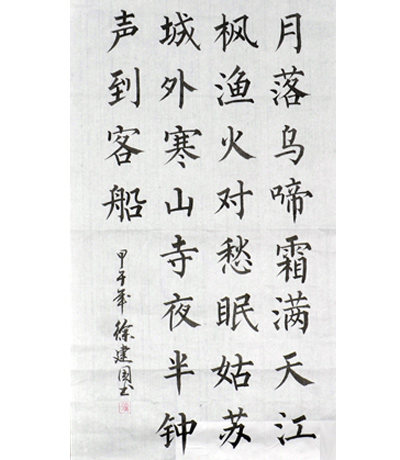 月落乌啼霜满天江
枫渔火对愁眠姑苏
城外寒山寺夜半钟
声到客船
甲午年徐建国书